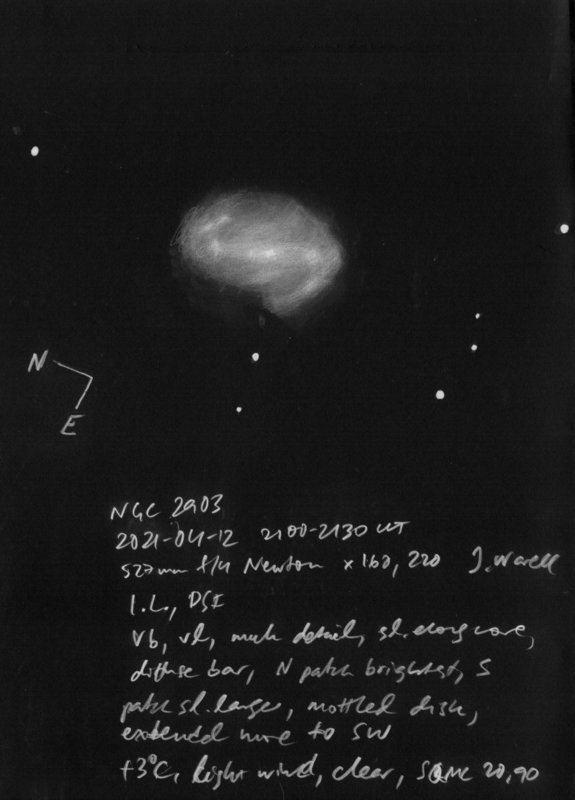 N
E
NGC 2903
2021-04-12 2100-2130 UT
527mm f/4 Newton x160, 220 J. Warell
I.L., DSI
vb, vl, much detail, sl. elong core,
diffuse bar, N patch brightest, S
patch sl. larger, mottled disk,
extended more to SW
+3°C, light wind, clear, SQML 20,90